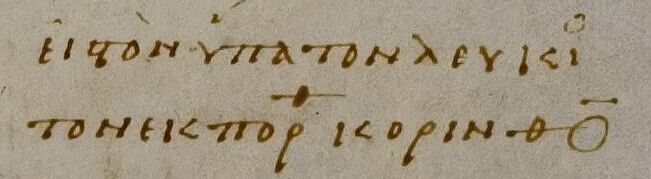 εἰςτὸν ὕπατον λευκιο
τον εκπορθ κορινθο̅